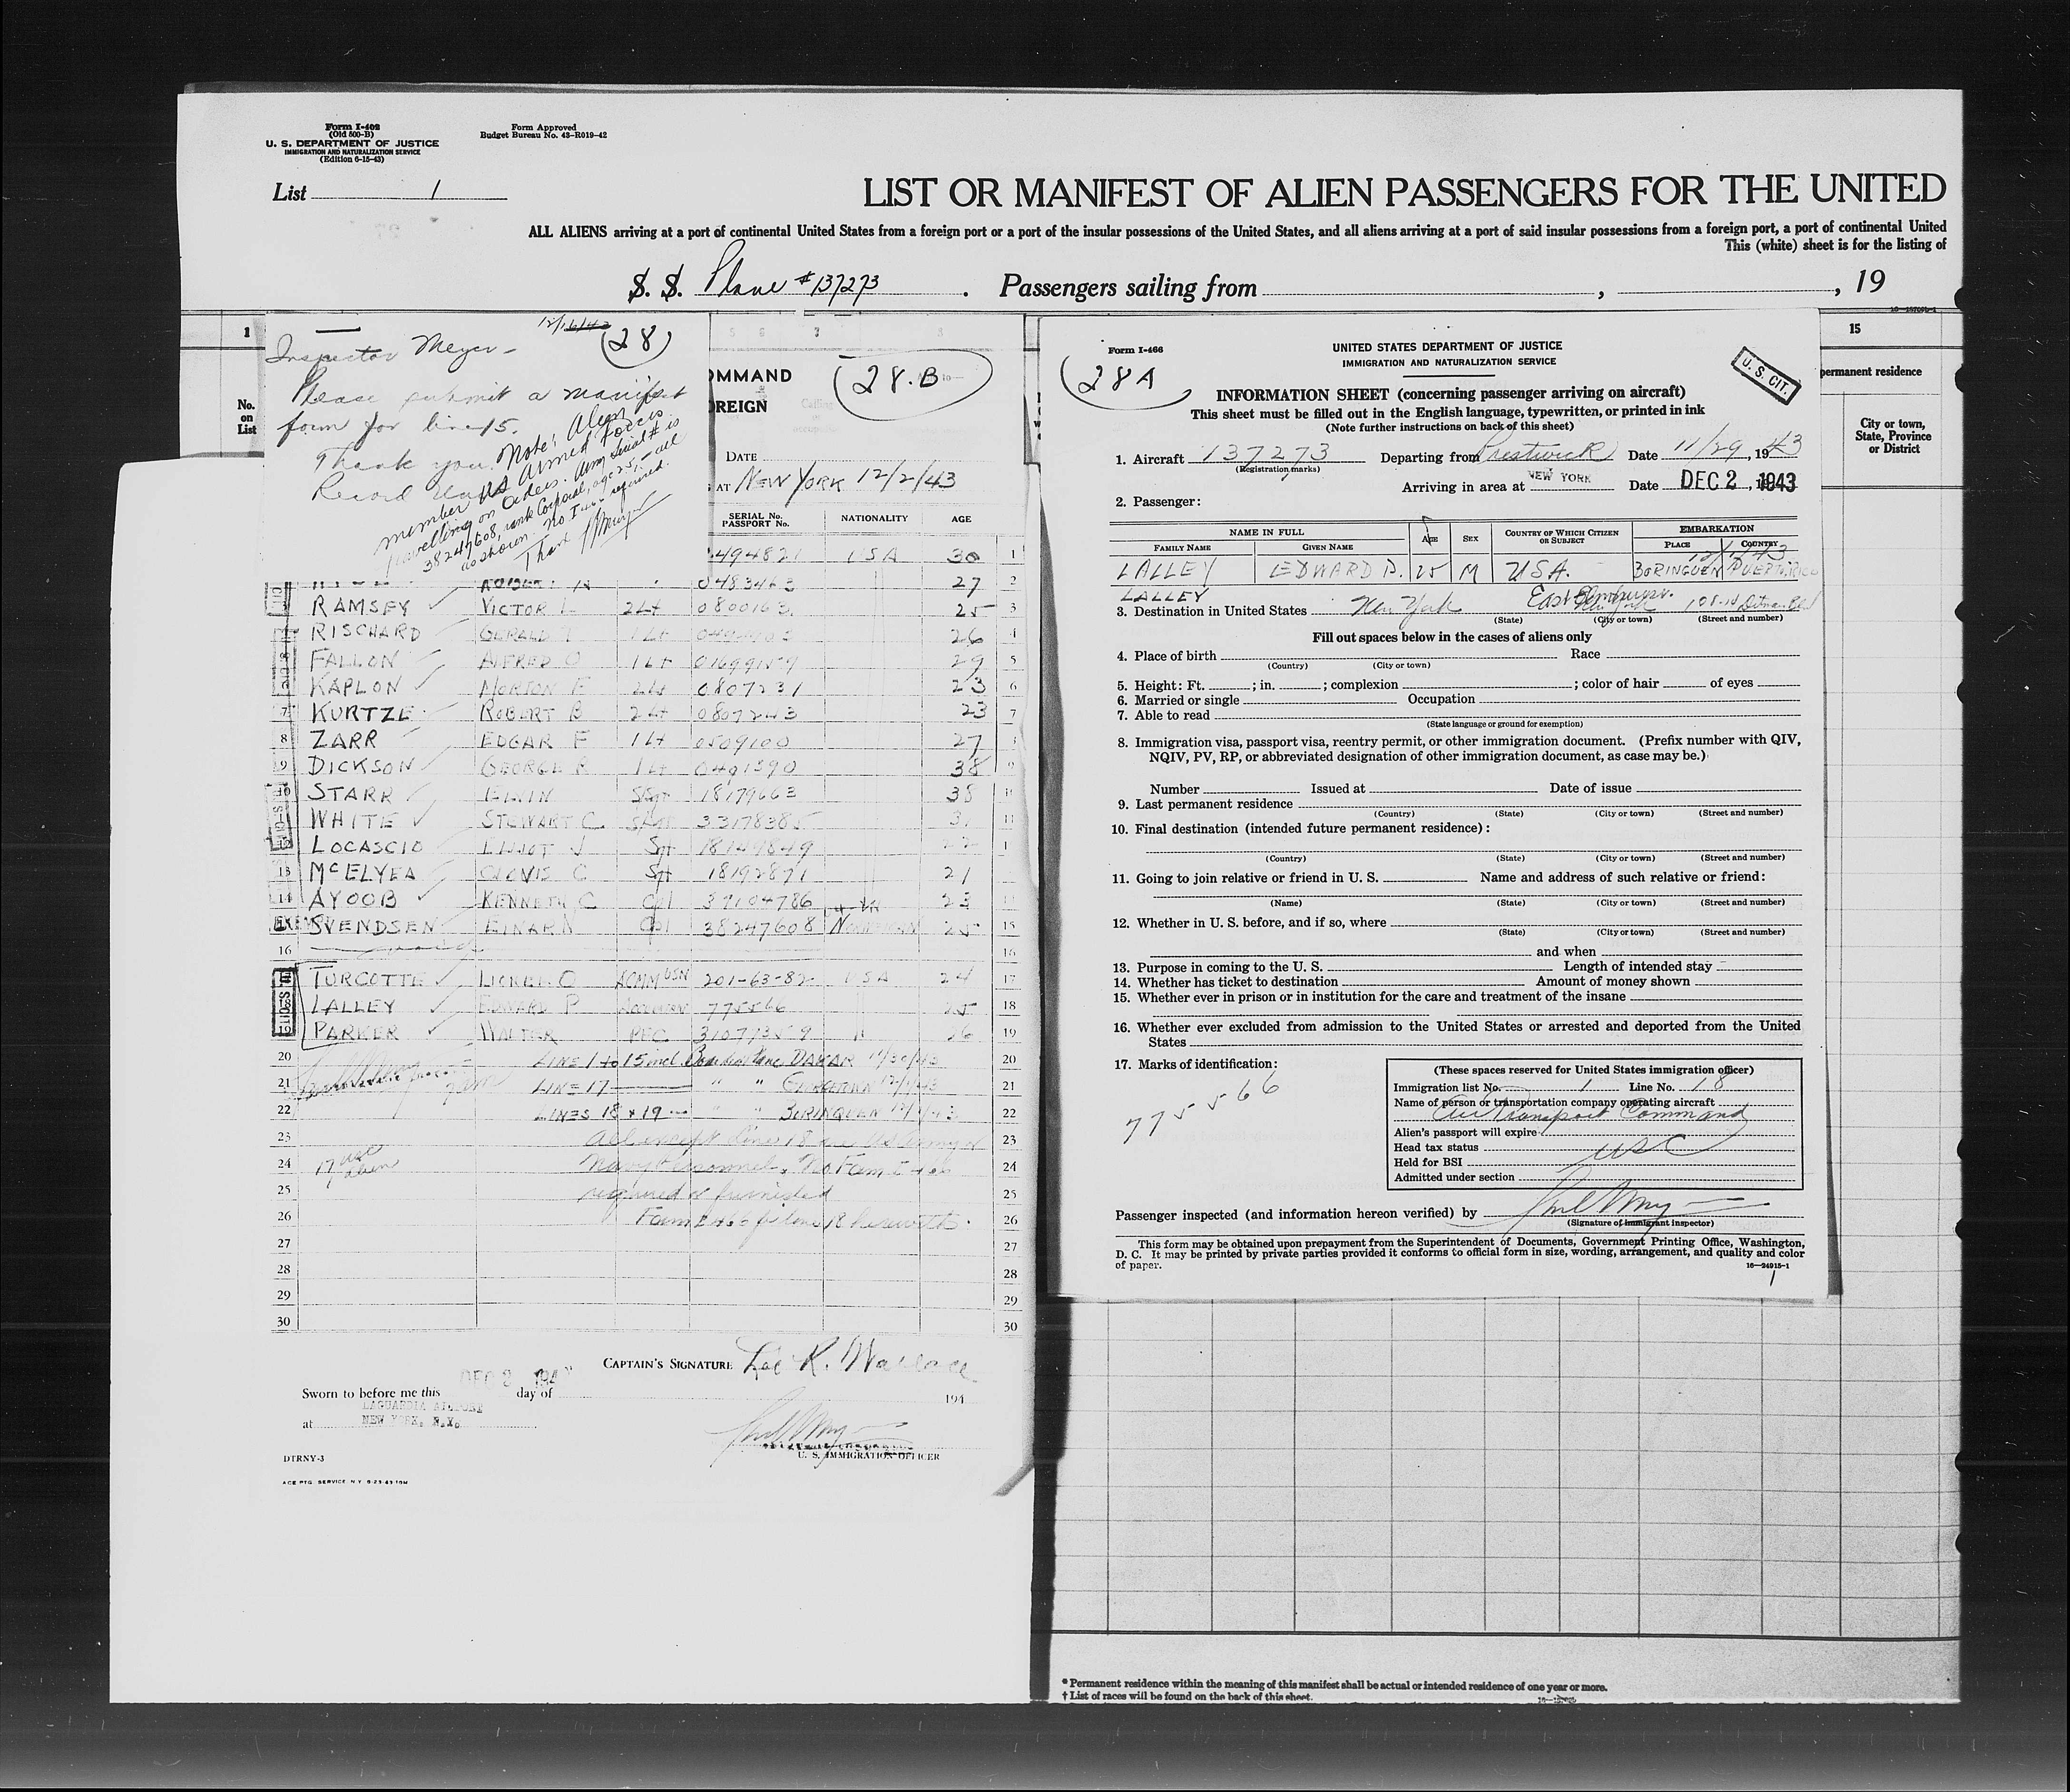 Form I-402
(Old 500-B)
U. S. DEPARTMENT OF JUSTICE
IMMIGRATION AND NATURALIZATION SERVICE
(Edition 6-15-43)
Form Approved
Budget Bureau No. 43-R019-42
List 1
LIST OR MANIFEST OF ALIEN PASSENGERS FOR THE UNITED
ALL ALIENS arriving at a port of continental United States from a foreign port or a port of the insular possessions of the United States, and all aliens arriving at a port of said insular possessions from a foreign port, a port of continental United
This (white) sheet is for the listing of
S. S. Plane #137273 . Passengers sailing from , , 19
1
No.
on
List
15
permanent residence
City or town,
State, Province
or District
12/16/43
28
Inspector Meyer-
Please submit a manifest
form for line 15.
Thank you.
Record
Note: Alien
member U.S. Armed Forces
travelling on orders. Army Serial # is
38247608, rank Corporal, age 25, - all
as shown. No I-466 required.
OMMAND
OREIGN
28.B
DATE
AT NEW YORK 12/2/43
SERIAL No.
PASSPORT No. NATIONALITY AGE
494821 USA 30 1
0483463 27 2
RAMSEY VICTOR L 2Lt 0800163 25 3
RISCHARD GERALD T 1Lt 26 4
FALLON ALFRED O 1Lt 01699159 29 5
KAPLON MORTON F 2Lt 0807231 23 6
7 KURTZE ROBERT B 2Lt 0807243 23 7
8 ZARR EDGAR F 1Lt 0509100 27
9 DICKSON GEORGE R 1Lt 0491390 38 9
10 STARR ELVIN SSgt 18179663 38
WHITE STEWART C. 33178385 31 11
LOCASCIO J Sgt 18149849 22
13 McELYEA CLOVIS C Sgt 18192871 21
14 AYOOB KENNETH C Cpl 39104786 23
SVENDSEN EINAR N Cpl 38247608 25 15
16 16
TURCOTTE LIONEL O USN 201-63-82 USA 24 17
18 LALLEY EDWARD P 775566 25 18
19 PARKER WALTER PFC 31071359 " 26 19
20 LINE 1 to 15 incl. Boarded plane DAKAR 11/30/43 20
21 LINE 17 " " GEORGETOWN 12/1/43 21
22 LINES 18 & 19 " " BORINQUEN 12/1/43 22
23 All except line 18 are US Army or 23
24 Navy Personnel. No Form I-466 24
17 USC
1 alien
25 required or furnished 25
26 Form I-466 for line 18 herewith. 26
27 27
28 28
29 29
30 30
CAPTAIN'S SIGNATURE Lee R. Wallace
Sworn to before me this DEC 2 194 day of 194
at LAGUARDIA AIRPORT
NEW YORK, N.Y.
U. S. IMMIGRATION OFFICER
DTRNY-3
ACE PTG. SERVICE N.Y. 6-23-43 10M
Form I-466
28A
UNITED STATES DEPARTMENT OF JUSTICE
IMMIGRATION AND NATURALIZATION SERVICE
U. S. CIT.
INFORMATION SHEET (concerning passenger arriving on aircraft)
This sheet must be filled out in the English language, typewritten, or printed in ink
(Note further instructions on back of this sheet)
1. Aircraft 137273 Departing from Prestwick Date 11/29, 1943
(Registration marks)
Arriving in area at NEW YORK Date DEC 2, 1943
2. Passenger:
NAME IN FULL AGE SEX COUNTRY OF WHICH CITIZEN OR SUBJECT EMBARKATION
FAMILY NAME GIVEN NAME PLACE COUNTRY
12/1/43
LALLEY EDWARD P. 25 M USA. BORINQUEN PUERTO RICO
LALLEY
3. Destination in United States New York East Elmhurst. New York 108-14 Ditmars Blvd
(State) (City or town) (Street and number)
Fill out spaces below in the cases of aliens only
4. Place of birth Race
(Country) (City or town)
5. Height: Ft. ; in. ; complexion ; color of hair of eyes
6. Married or single Occupation
7. Able to read
(State language or ground for exemption)
8. Immigration visa, passport visa, reentry permit, or other immigration document. (Prefix number with QIV,
NQIV, PV, RP, or abbreviated designation of other immigration document, as case may be.)
Number Issued at Date of issue
9. Last permanent residence
(Country) (State) (City or town) (Street and number)
10. Final destination (intended future permanent residence):
(Country) (State) (City or town) (Street and number)
11. Going to join relative or friend in U. S. Name and address of such relative or friend:
(Name) (State) (City or town) (Street and number)
12. Whether in U. S. before, and if so, where
(State) (City or town) (Street and number)
and when
13. Purpose in coming to the U. S. Length of intended stay
14. Whether has ticket to destination Amount of money shown
15. Whether ever in prison or in institution for the care and treatment of the insane
16. Whether ever excluded from admission to the United States or arrested and deported from the United
States
17. Marks of identification:
775566
(These spaces reserved for United States immigration officer)
Immigration list No. 1 Line No. 18
Name of person or transportation company operating aircraft
Air Transport Command
Alien's passport will expire
Head tax status USC
Held for BSI
Admitted under section
Passenger inspected (and information hereon verified) by
(Signature of immigrant inspector)
This form may be obtained upon prepayment from the Superintendent of Documents, Government Printing Office, Washington,
D. C. It may be printed by private parties provided it conforms to official form in size, wording, arrangement, and quality and color
of paper.
16—24915-1
1
* Permanent residence within the meaning of this manifest shall be actual or intended residence of one year or more.
† List of races will be found on the back of this sheet.